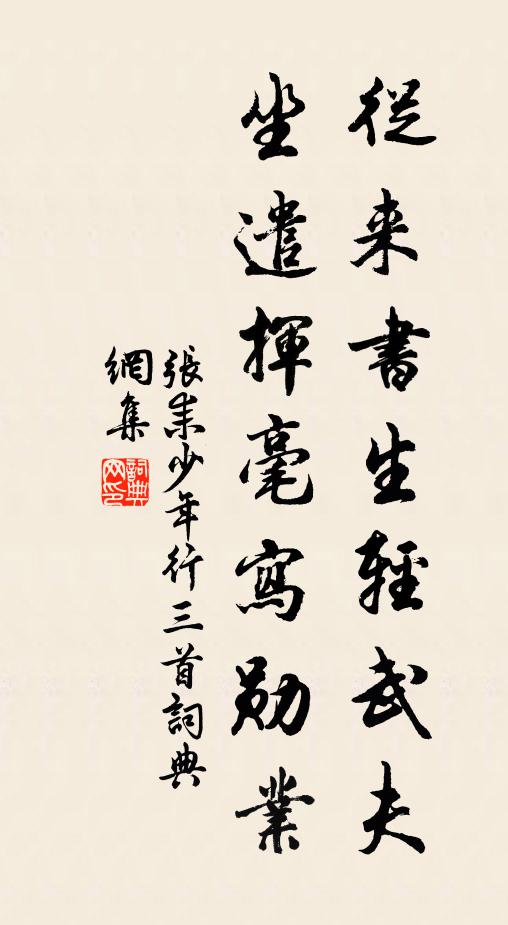 從来書生輕武夫
坐遣揮毫寫勛業
張耒少年行三首詞典
網集
詞典
网印